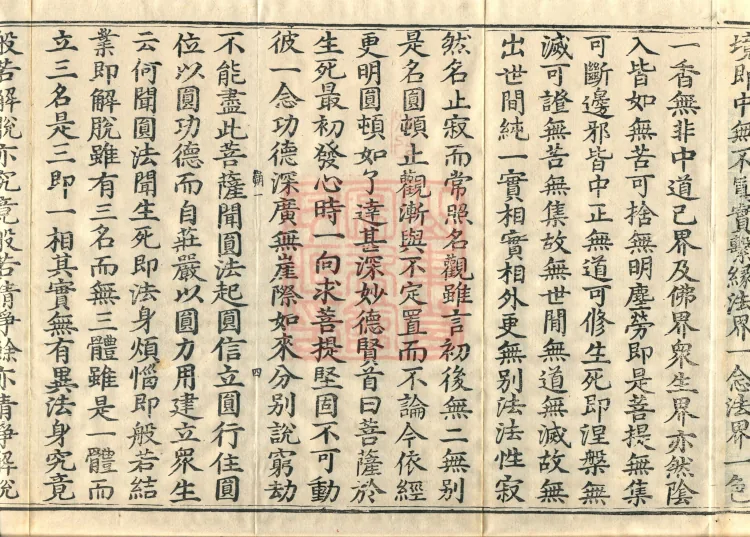 境即中無不眞實繫緣法界一念法界一色
一香無非中道己界及佛界衆生界亦然陰
入皆如無苦可捨無明塵勞即是菩提無集
可斷邊邪皆中正無道可修生死即涅槃無
滅可證無苦無集故無世間無道無滅故無
出世間純一實相實相外更無別法法性寂
然名止寂而常照名觀雖言初後無二無別
是名圓頓止觀漸與不定置而不論今依經
更明圓頓如了達甚深妙德賢首曰菩薩於
生死最初發心時一向求菩提堅固不可動
彼一念功德深廣無崖際如來分別說窮劫
四
不能盡此菩薩聞圓法起圓信立圓行住圓
位以圓功德而自莊嚴以圓力用建立衆生
云何聞圓法聞生死即法身煩惱即般若結
業即解脫雖有三名而無三體雖是一體而
立三名是三即一相其實無有異法身究竟
般若解脫亦究竟般若清淨餘亦清淨解脫